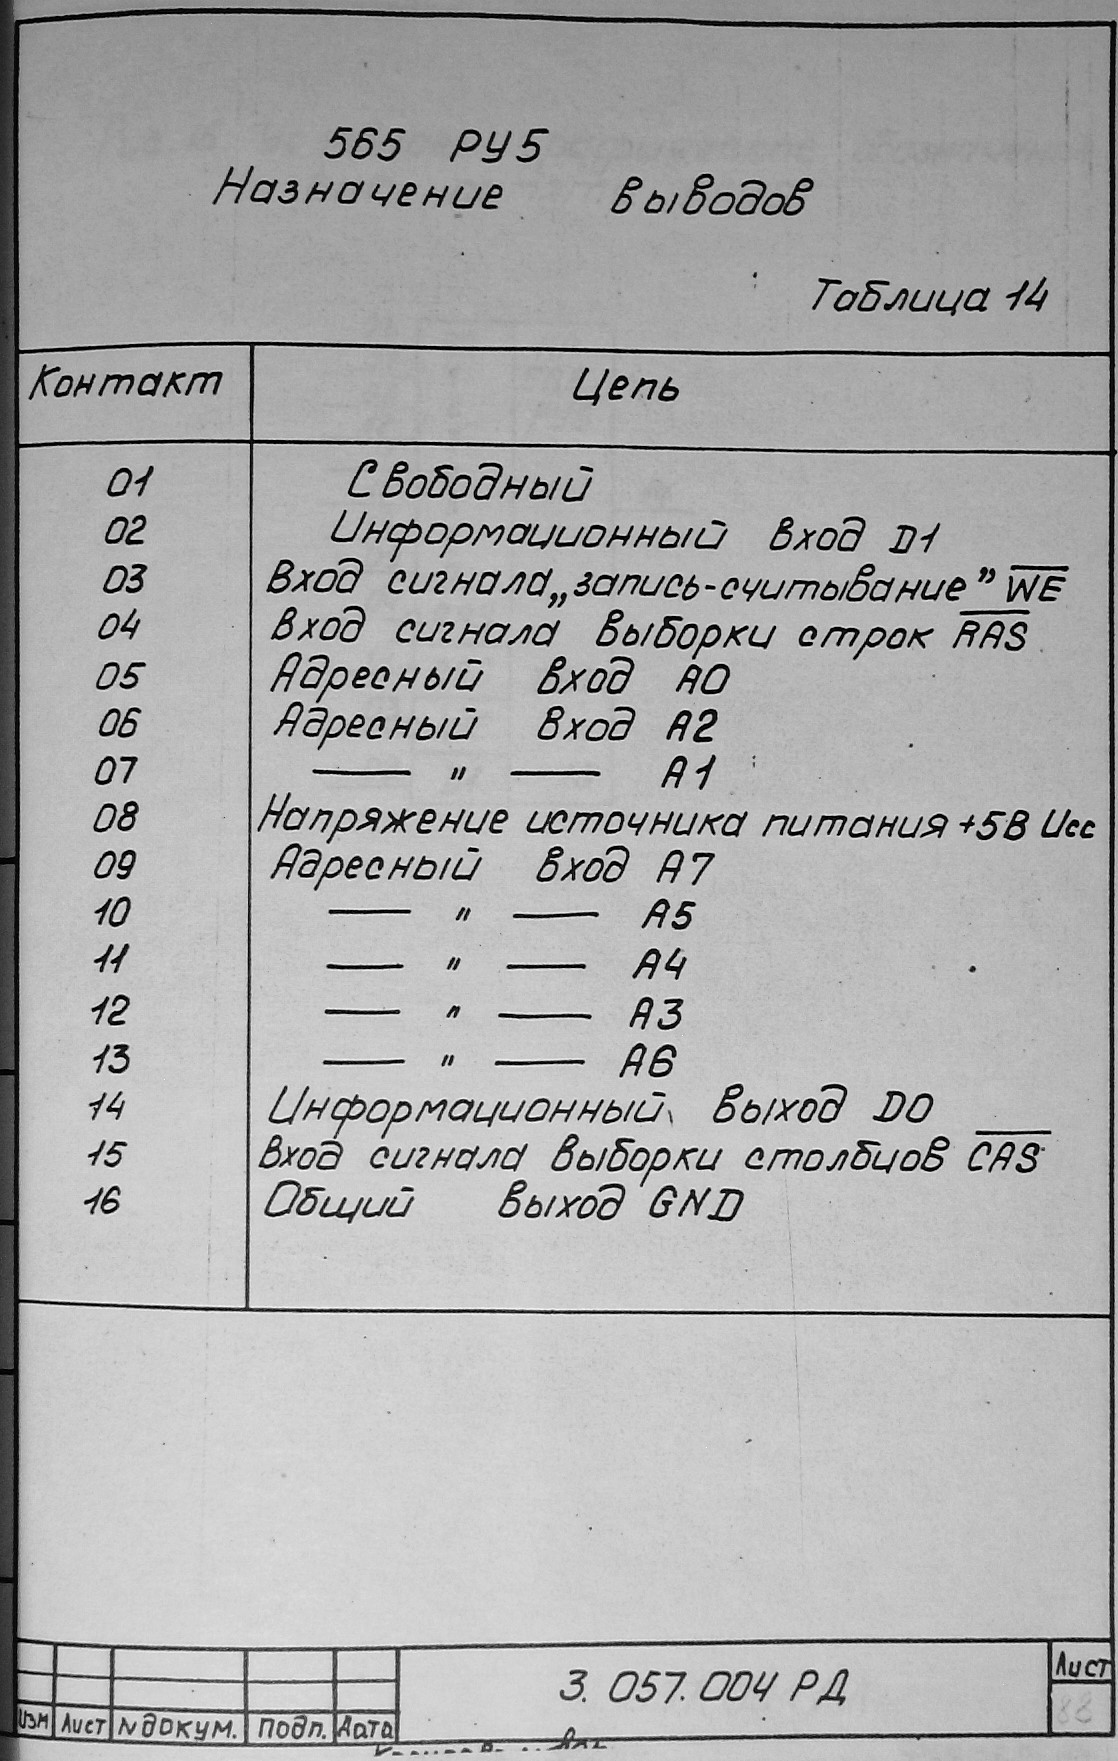 565 РУ5
Назначение выводов
Таблица 14
Контакт Цепь
01 Свободный
02 Информационный вход D1
03 Вход сигнала „запись-считывание” W̅E̅
04 Вход сигнала выборки строк R̅A̅S̅
05 Адресный вход А0
06 Адресный вход А2
07 —— " —— А1
08 Напряжение источника питания +5В Ucc
09 Адресный вход А7
10 —— " —— А5
11 —— " —— А4
12 —— " —— А3
13 —— " —— А6
14 Информационный выход D0
15 Вход сигнала выборки столбцов C̅A̅S̅
16 Общий выход GND
3.057.004 РД
Лист
88
Изм Лист №докум. Подп. Дата